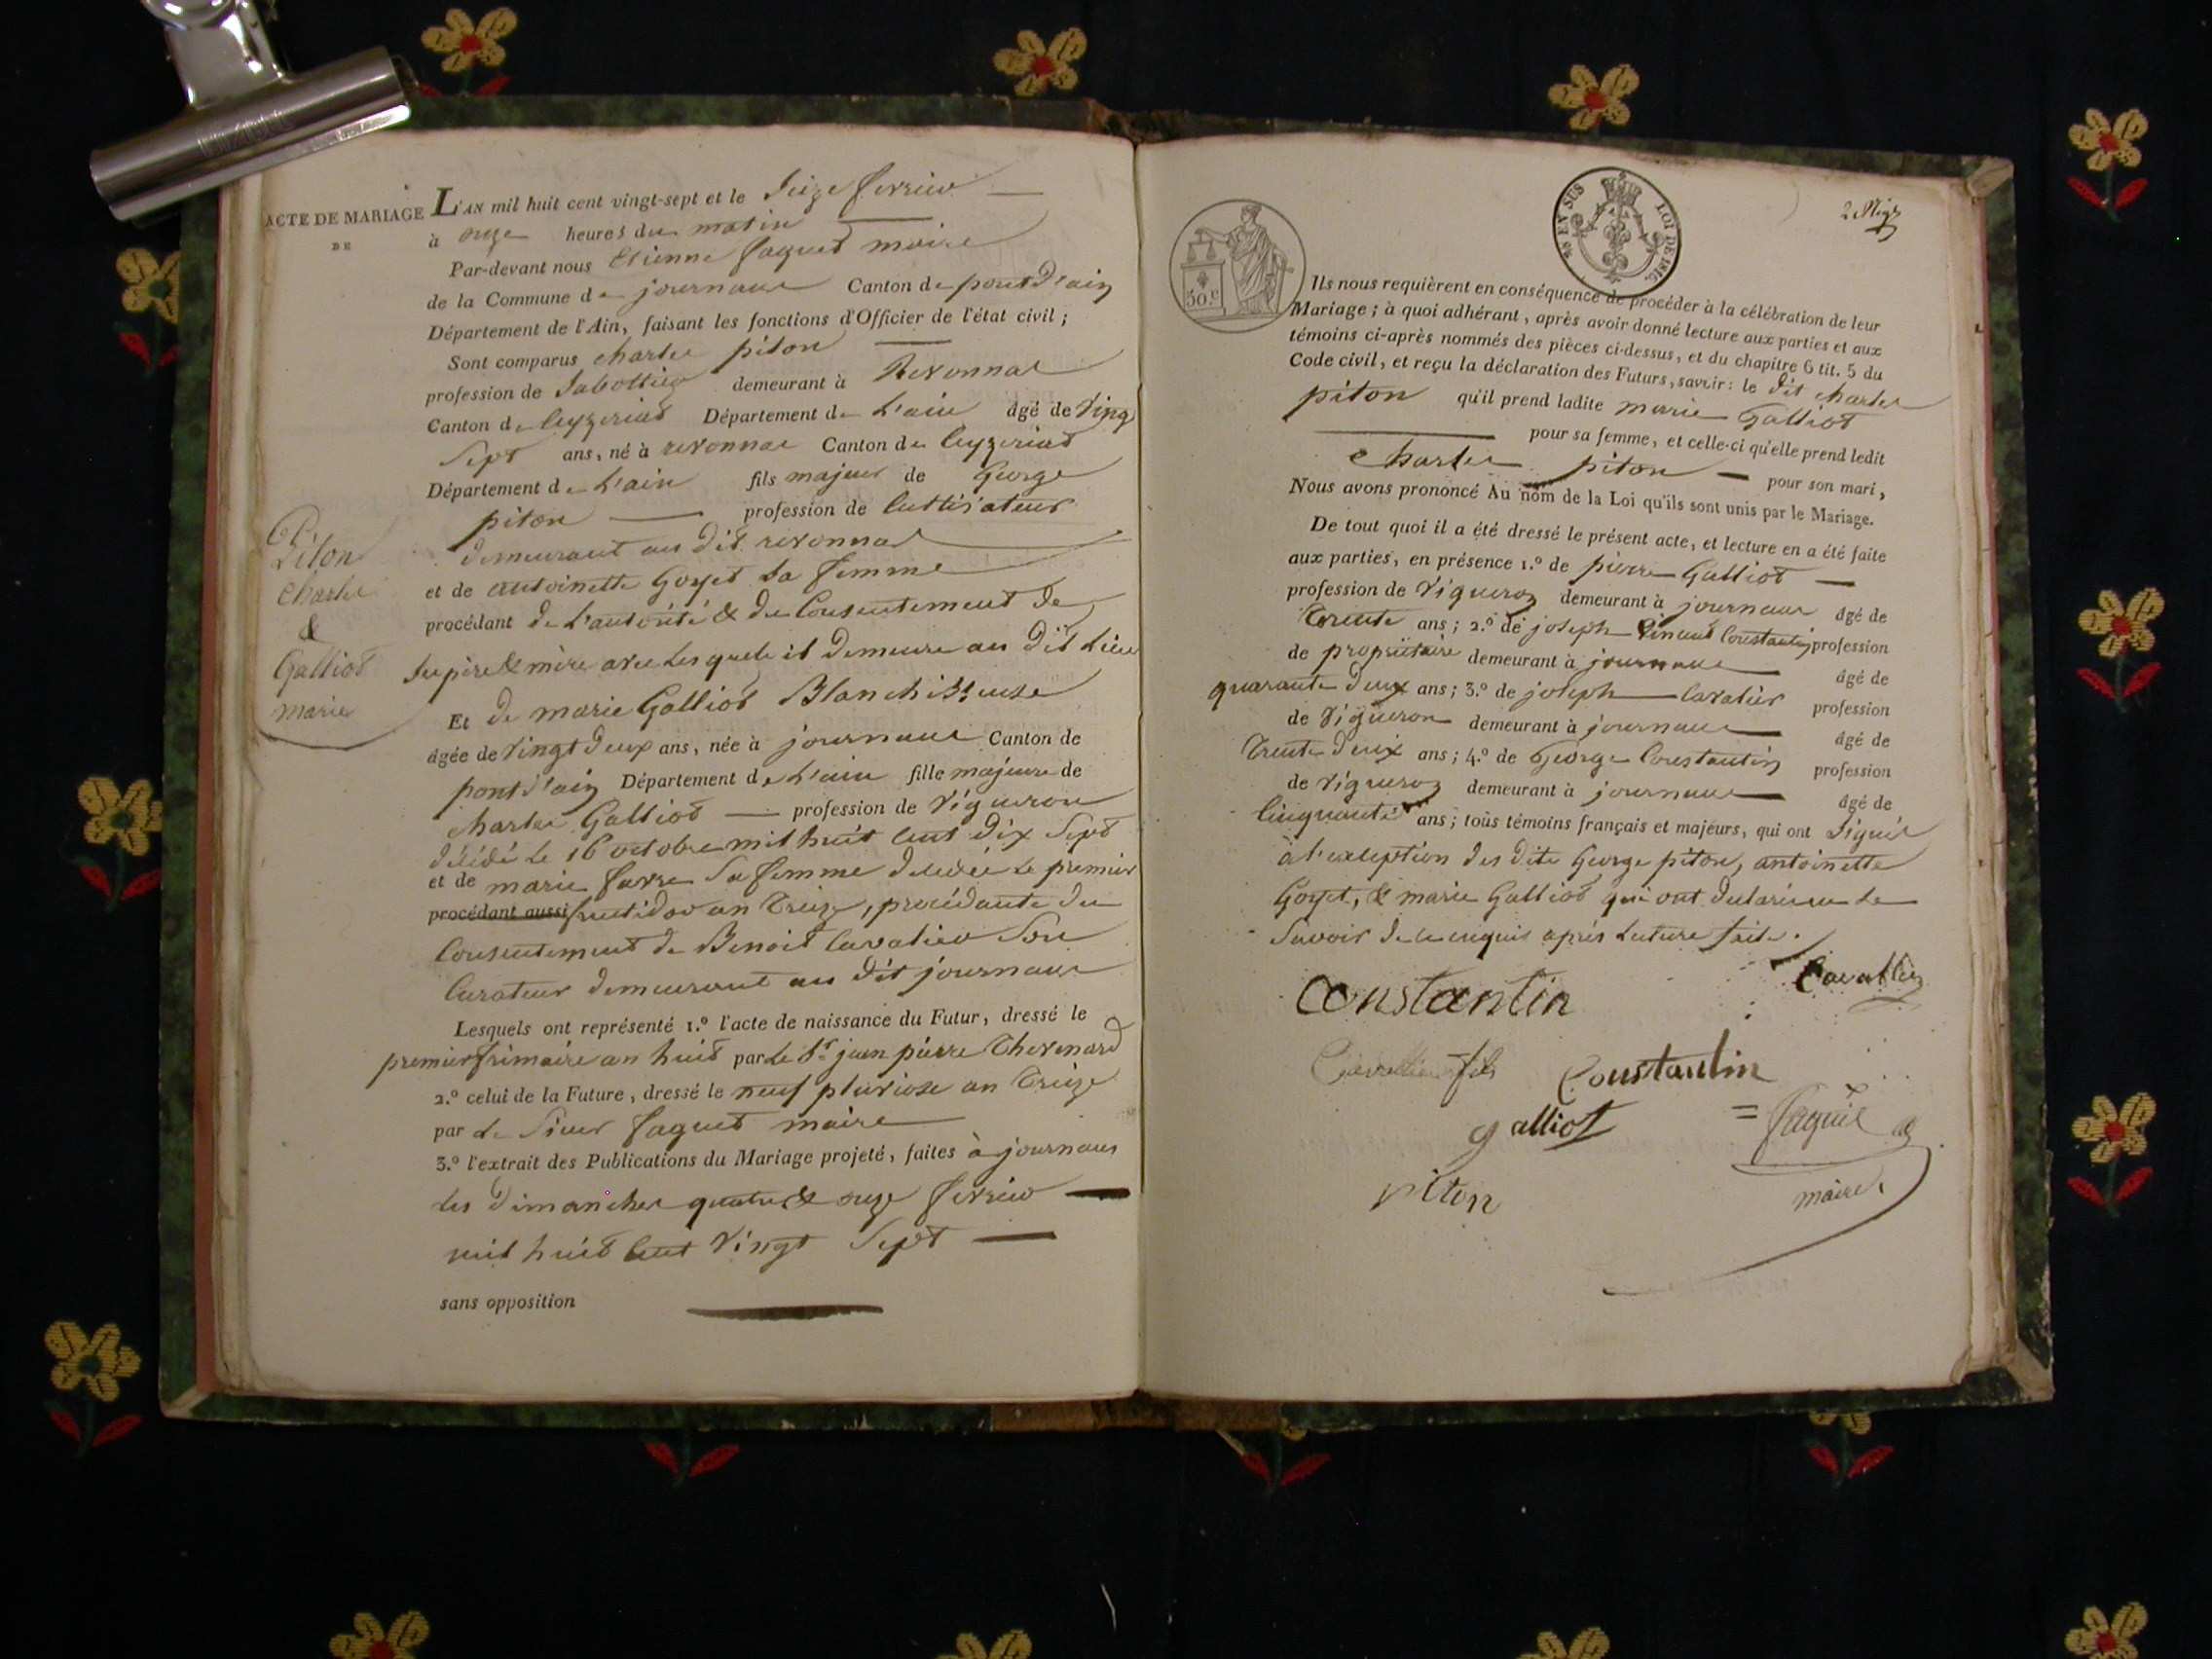 ACTE DE MARIAGE
DE
Piton
Charle
&
Galliot
marie
L'AN mil huit cent vingt-sept et le Seize fevrier
à onze heures du matin
Par-devant nous Etienne faguet maire
de la Commune de journans Canton de pont d'ain
Département de l'Ain, faisant les fonctions d'Officier de l'état civil ;
Sont comparus charles piton
profession de Sabottier demeurant à Revonnas
Canton de Ceyzeriat Département de L'ain âgé de Vingt
Sept ans, né à revonnas Canton de Ceyzeriat
Département de L'ain fils majeur de George
piton profession de Cultivateur
demeurant au dit revonnas
et de antoinette Goyet Sa femme
procédant de L'autorité & du Consentement de
Ses pere & mère avec Lesquels il Demeure au Dit Lieu
Et de marie Galliot Blanchisseuse
âgée de Vingt deux ans, née à journans Canton de
pont d'ain Département de L'ain fille majeure de
charles Galliot profession de Vigneron
décédé Le 16 octobre mil huit Cent Dix Sept
et de marie favre Sa femme Décédée Le premier
procédant aussi fructidor an Treize, procédante du
Consentement de Benoit Cavalier Son
Curateur demeurant au dit journans
Lesquels ont représenté 1.º l'acte de naissance du Futur, dressé le
premier frimaire an huit par Le Sr. jean pierre Thevenard
2.º celui de la Future, dressé le neuf pluviose an Treize
par Le Sieur faguet maire
3.º l'extrait des Publications du Mariage projeté, faites à journans
les Dimanches quatre & onze fevrier
mil huit Cent Vingt Sept
sans opposition
EN SUS LOI DE 1816.
30.c
Ils nous requièrent en conséquence de procéder à la célébration de leur
Mariage ; à quoi adhérant, après avoir donné lecture aux parties et aux
témoins ci-après nommés des pièces ci-dessus, et du chapitre 6 tit. 5 du
Code civil, et reçu la déclaration des Futurs, savoir : le dit charles
piton qu'il prend ladite marie Galliot
pour sa femme, et celle-ci qu'elle prend ledit
Charles piton pour son mari,
Nous avons prononcé Au nom de la Loi qu'ils sont unis par le Mariage.
De tout quoi il a été dressé le présent acte, et lecture en a été faite
aux parties, en présence 1.º de pierre Galliot
profession de Vigneron demeurant à journans âgé de
Trente ans ; 2.º de joseph Constantin profession
de propriétaire demeurant à journans âgé de
quarante deux ans ; 3.º de joseph Cavalier profession
de Vigneron demeurant à journans âgé de
Trente deux ans ; 4.º de George Constantin profession
de Vigneron demeurant à journans âgé de
Cinquante ans ; tous témoins français et majeurs, qui ont Signés
à l'exception des dits George piton, antoinette
Goyet, & marie Galliot qui ont declarés ne Le
Savoir de ce enquis après Lecture faite.
Constantin Cavallier
Cavallier fils Constantin
galliot = faguet
piton maire.